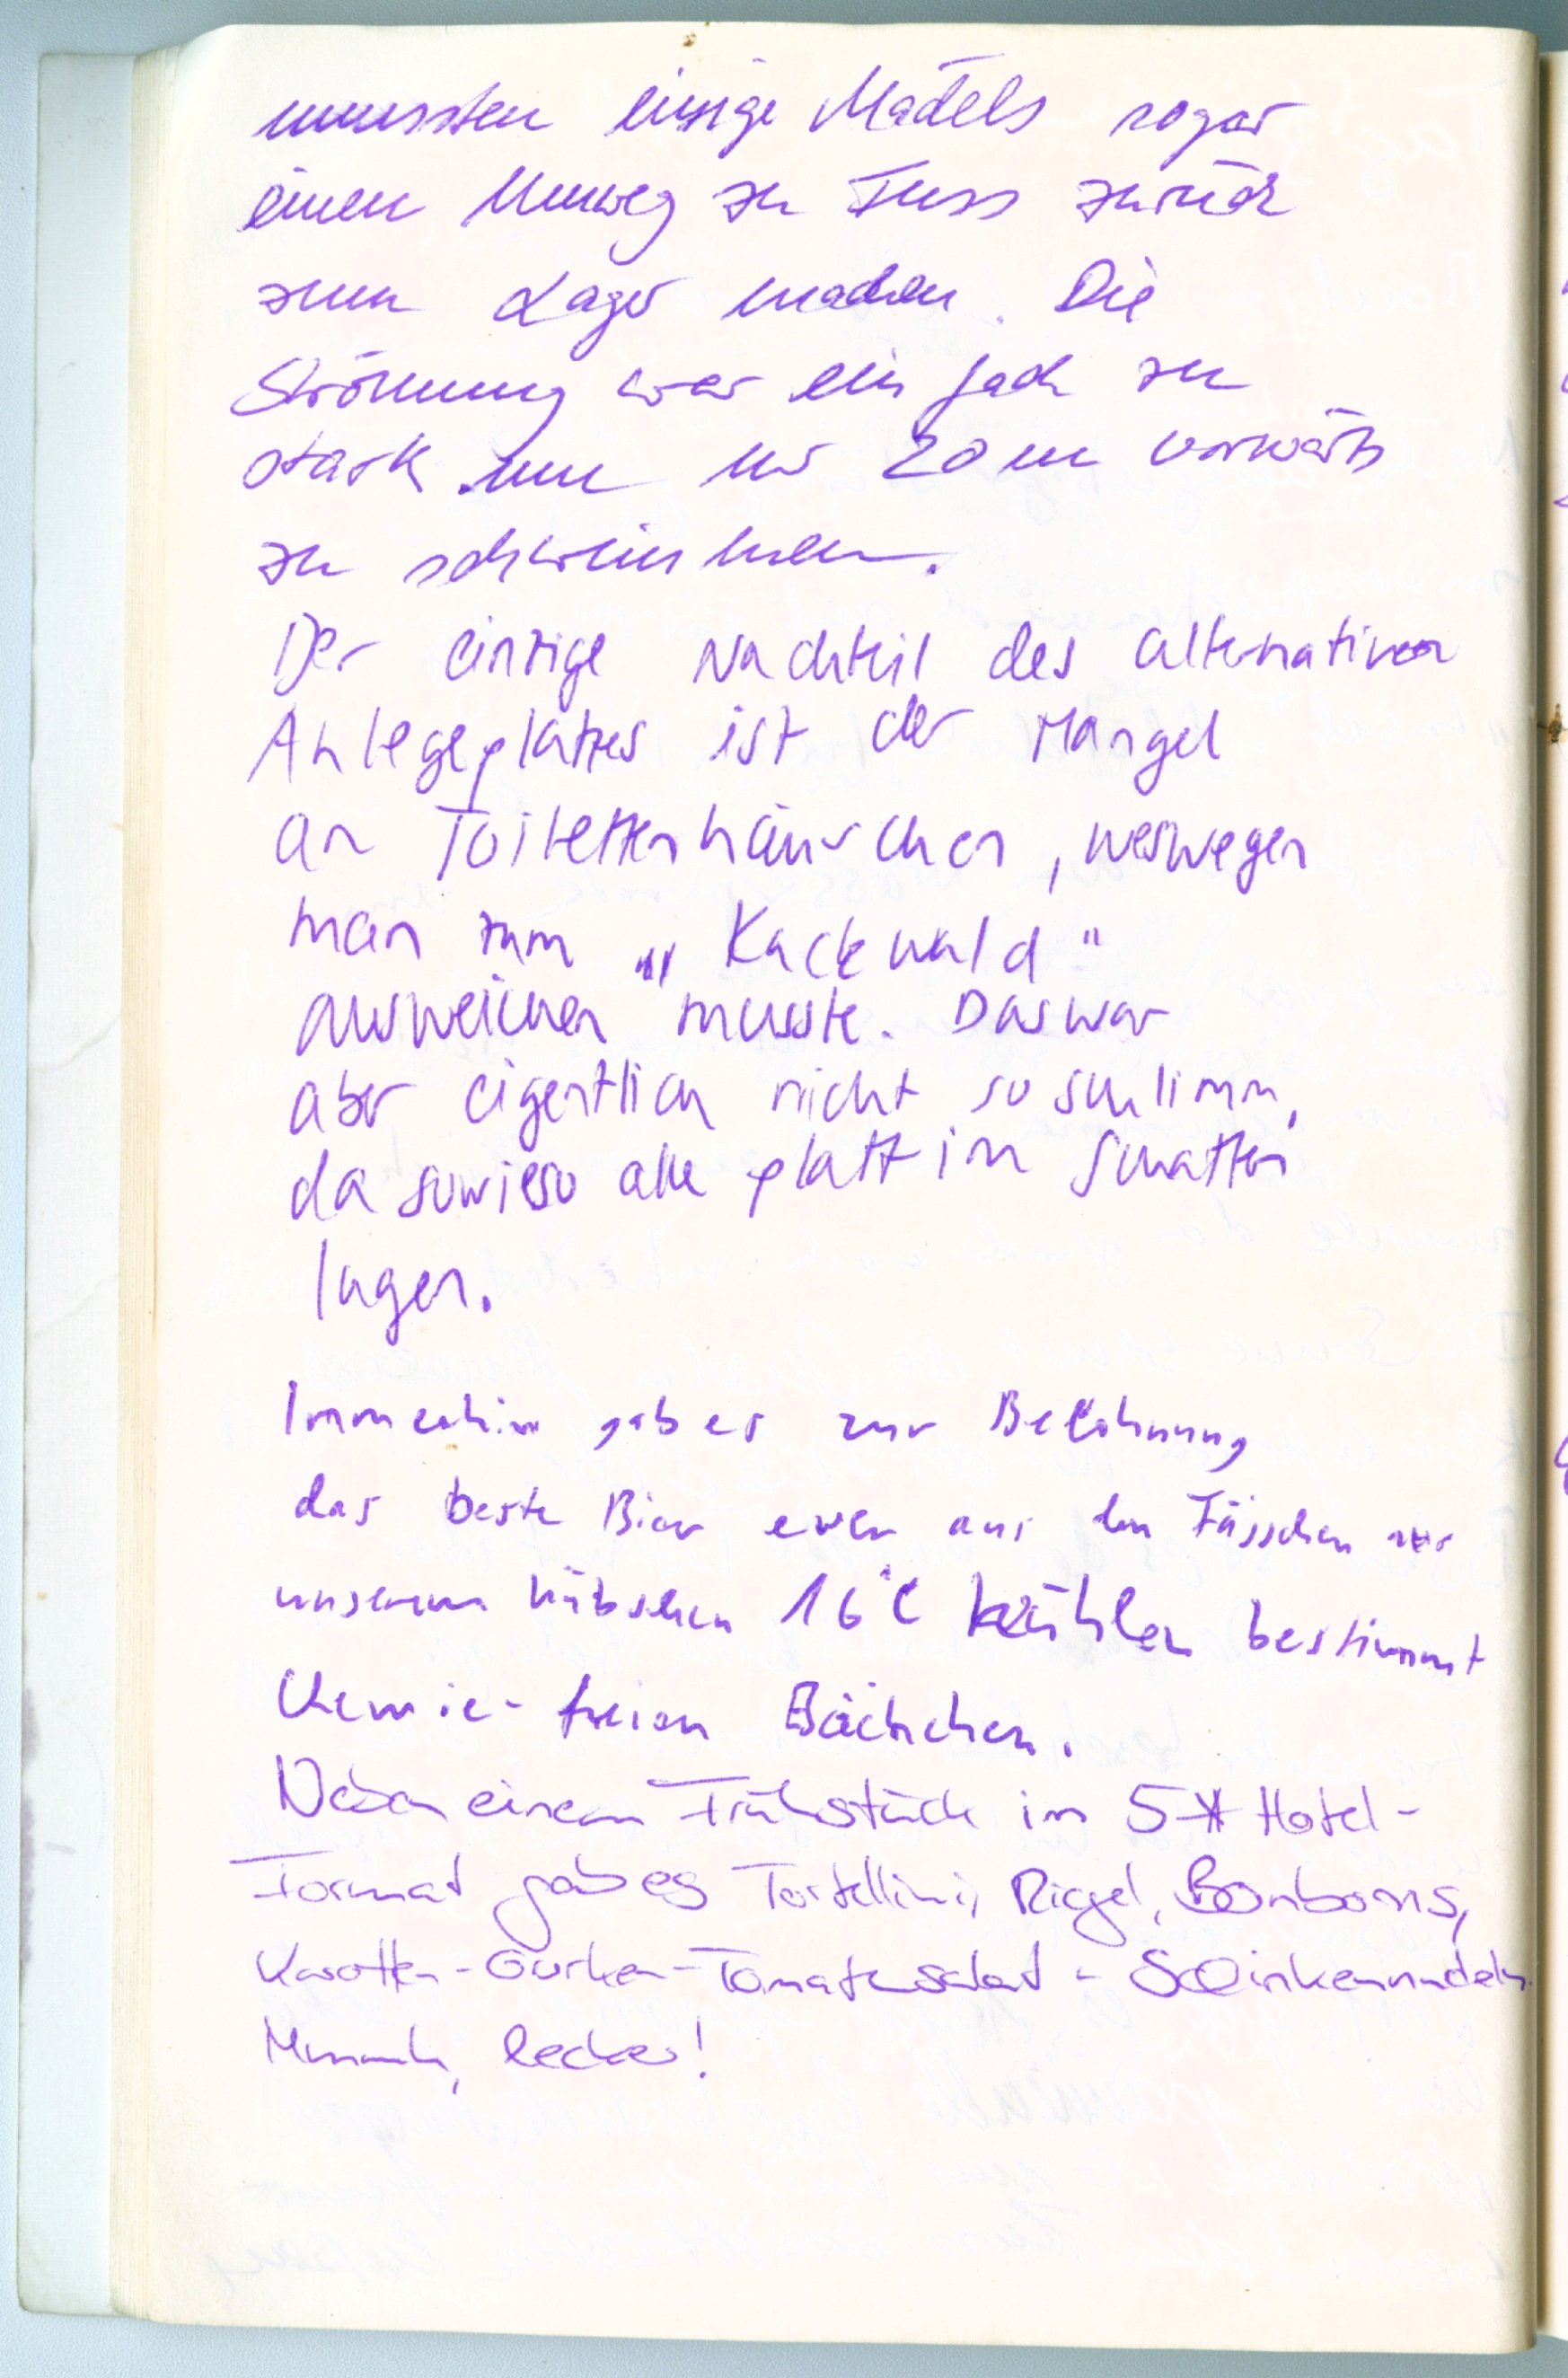 mussten einige Mädels sogar
einen Umweg zu Fuss zurück
zum Lager machen. Die
Strömung war einfach zu
stark um nur 20 m vorwärts
zu schwimmen.
Der einzige Nachteil des alternativen
Anlegeplatzes ist der Mangel
an Toilettenhäuschen, weswegen
man zum „Kackwald"
ausweichen musste. Das war
aber eigentlich nicht so schlimm,
da sowieso alle platt im Schatten
lagen.
Immerhin gab es zur Belohnung
das beste Bier ever aus den Fässchen aus
unserem hübschen 16°C kühlen bestimmt
Chemie-freien Bächchen.
Neben einem Frühstück im 5* Hotel-
Format gab es Tortellini, Riegel, Bonbons,
Karotten-Gurken-Tomatensalat - Schinkennudeln.
Mmmh, lecker!